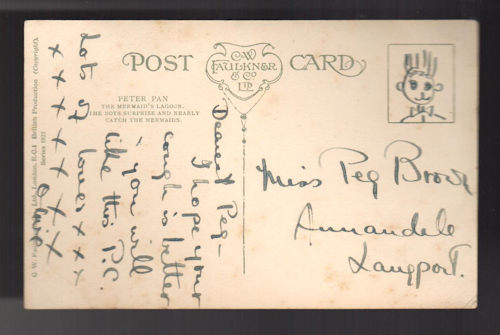 POST CARD
C.W.
FAULKNER
& Co
LTD.
PETER PAN
THE MERMAID'S LAGOON.
THE BOYS SURPRISE AND NEARLY
CATCH THE MERMAIDS.
Dearest Peg -
I hope your
cough is better
- you will
like this P.C.
Lots of love xxx
x x x x x x x
Miss Peg
Annandale
Langport.
C. W. Faulkner & Co. Ltd., London, E.C.1 British Production (Copyright).
Series 1822